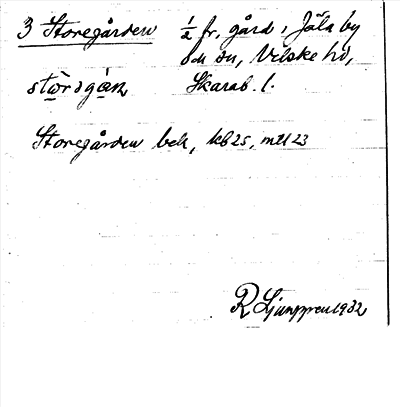 3 Storegården ½ fr. gård i Jäla by
och sn, Vilske hd,
Skarab. l.
Storegården bek, kb25, mtl 23
R Ljunggren 1932